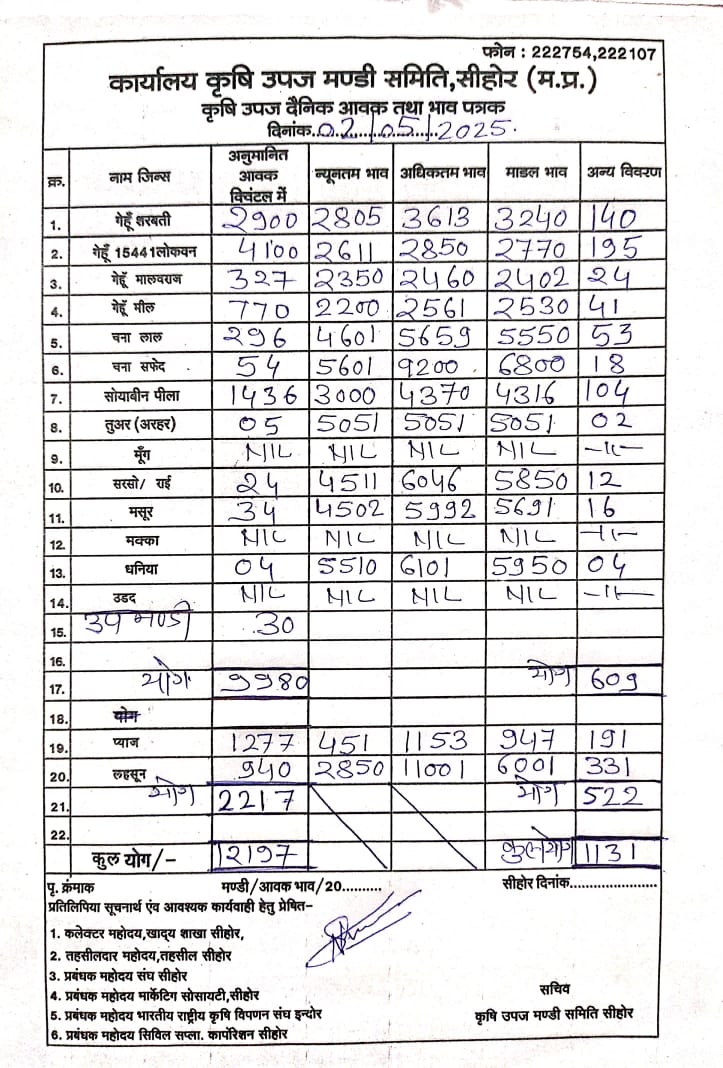 फोन : 222754,222107
कार्यालय कृषि उपज मण्डी समिति,सीहोर (म.प्र.)
कृषि उपज दैनिक आवक तथा भाव पत्रक
दिनांक..02/05/2025.
क्र. नाम जिन्स अनुमानित आवक क्विंटल में न्यूनतम भाव अधिकतम भाव माडल भाव अन्य विवरण
1. गेहूँ शरबती 2900 2805 3613 3240 140
2. गेहूँ 15441लोकवन 4100 2611 2850 2770 195
3. गेहूँ मालवराज 327 2350 2460 2402 24
4. गेहूँ मील 770 2200 2561 2530 41
5. चना लाल 296 4601 5659 5550 53
6. चना सफेद 54 5601 9200 6800 18
7. सोयाबीन पीला 1436 3000 4370 4316 104
8. तुअर (अरहर) 05 5051 5051 5051 02
9. मूँग NIL NIL NIL NIL -11-
10. सरसो/ राई 24 4511 6046 5850 12
11. मसूर 34 4502 5992 5691 16
12. मक्का NIL NIL NIL NIL -11-
13. धनिया 04 5510 6101 5950 04
14. उडद NIL NIL NIL NIL -11-
15. उप मण्डी 30
16.
17. योग 9980 योग 609
18. योग
19. प्याज 1277 451 1153 947 191
20. लहसून 940 2850 11001 6001 331
21. योग 2217 योग 522
22.
कुल योग/- 12197 कुलयोग 1131
पृ. क्रंमाक मण्डी/आवक भाव/20.......... सीहोर दिनांक......................
प्रतिलिपिया सूचनार्थ एंव आवश्यक कार्यवाही हेतु प्रेषित–
1. कलेक्टर महोदय,खाद्य शाखा सीहोर,
2. तहसीलदार महोदय,तहसील सीहोर
3. प्रबंधक महोदय संघ सीहोर
4. प्रबंधक महोदय मार्केटिग सोसायटी,सीहोर
5. प्रबंधक महोदय भारतीय राष्ट्रीय कृषि विपणन संघ इन्दोर
6. प्रबंधक महोदय सिविल सप्ला. कार्पोरेशन सीहोर
सचिव
कृषि उपज मण्डी समिति सीहोर